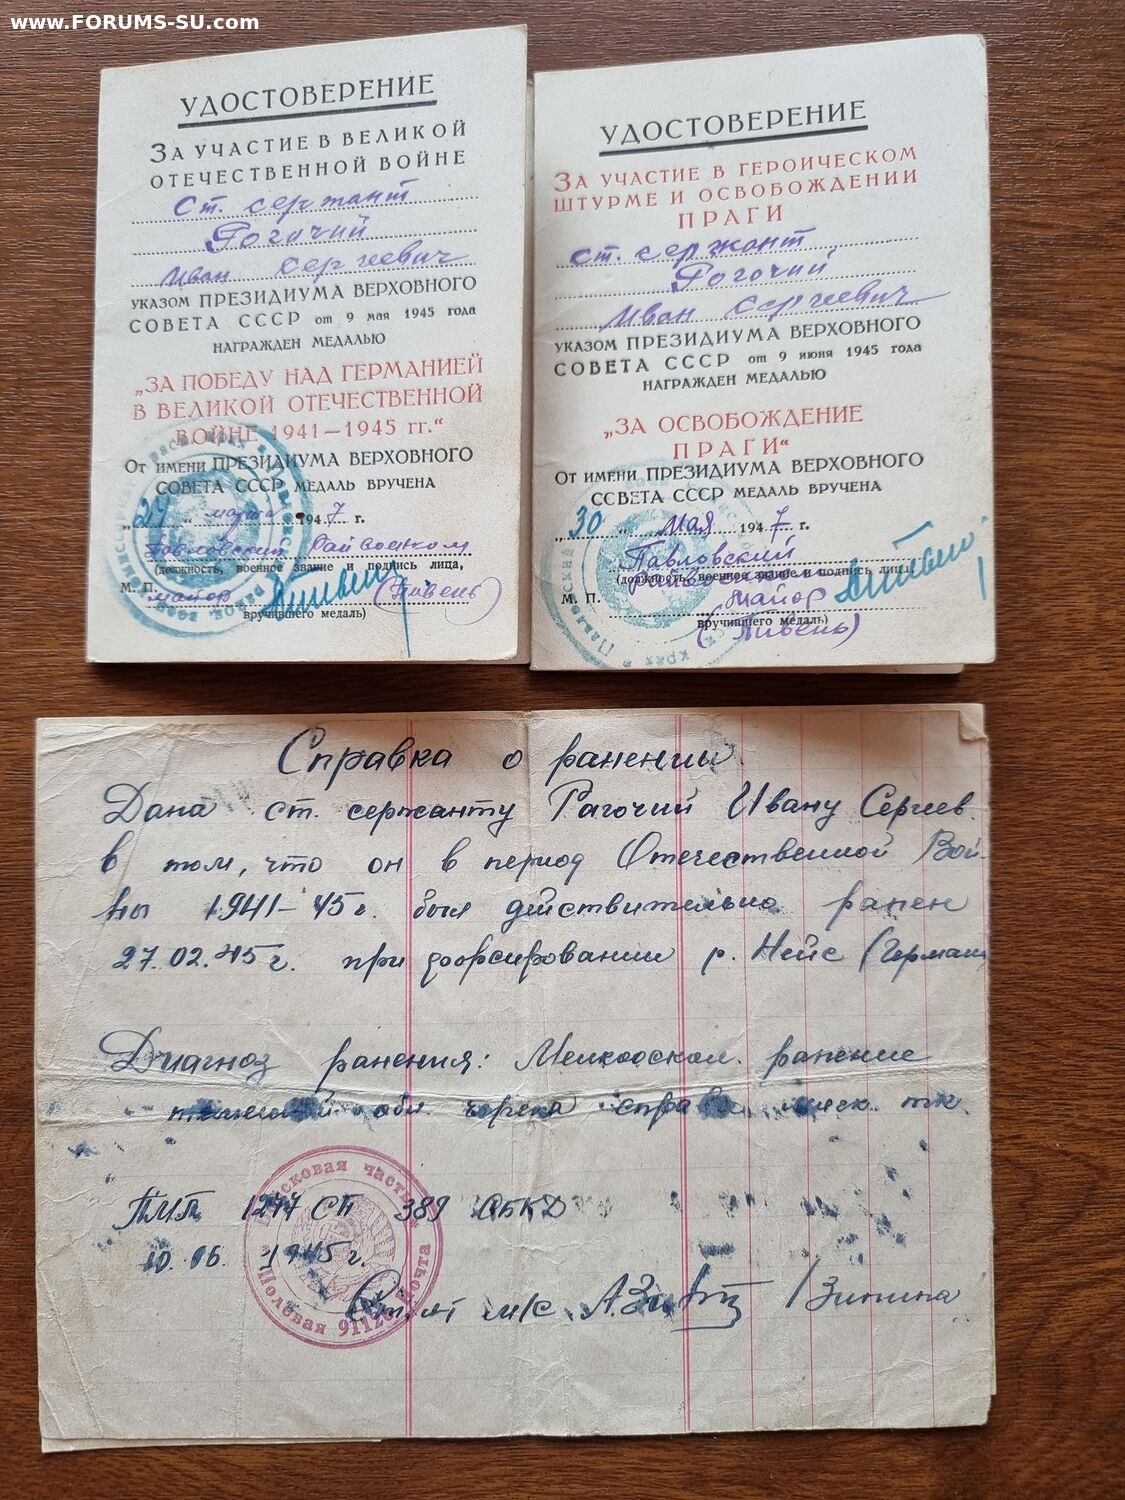 www.FORUMS-SU.com
УДОСТОВЕРЕНИЕ
ЗА УЧАСТИЕ В ВЕЛИКОЙ
ОТЕЧЕСТВЕННОЙ ВОЙНЕ
Ст. сержант
Рогочий
Иван Сергеевич
УКАЗОМ ПРЕЗИДИУМА ВЕРХОВНОГО
СОВЕТА СССР от 9 мая 1945 года
НАГРАЖДЕН МЕДАЛЬЮ
„ЗА ПОБЕДУ НАД ГЕРМАНИЕЙ
В ВЕЛИКОЙ ОТЕЧЕСТВЕННОЙ
ВОЙНЕ 1941—1945 гг.“
ОТ ИМЕНИ ПРЕЗИДИУМА ВЕРХОВНОГО
СОВЕТА СССР МЕДАЛЬ ВРУЧЕНА
„29“ марта 1947 г.
Павловский Райвоенком
(должность, военное звание и подпись лица,
М. П. майор (Пивень)
вручившего медаль)
УДОСТОВЕРЕНИЕ
ЗА УЧАСТИЕ В ГЕРОИЧЕСКОМ
ШТУРМЕ И ОСВОБОЖДЕНИИ
ПРАГИ
ст. сержант
Рогочий
Иван Сергеевич
УКАЗОМ ПРЕЗИДИУМА ВЕРХОВНОГО
СОВЕТА СССР от 9 июня 1945 года
НАГРАЖДЕН МЕДАЛЬЮ
„ЗА ОСВОБОЖДЕНИЕ
ПРАГИ“
ОТ ИМЕНИ ПРЕЗИДИУМА ВЕРХОВНОГО
СОВЕТА СССР МЕДАЛЬ ВРУЧЕНА
„30“ мая 1947 г.
Павловский
(должность, военное звание и подпись лица,
райвоенком
М. П. майор
вручившего медаль)
(Пивень)
Справка о ранении
Дана ст. сержанту Рагочий Ивану Сергеев.
в том, что он в период Отечественной Вой-
ны 1941–45 г. был действительно ранен
27.02.45 г. при форсировании р. Нейсе (Герман
Диагноз ранения: Мелкооскол. ранение
обл. справа мяск. тк.
ПМП 1277 СП 389 СБКД
10. 06. 1945 г.
Войсковая часть
Полевая почта
Ст. л-т м/с /Зинина